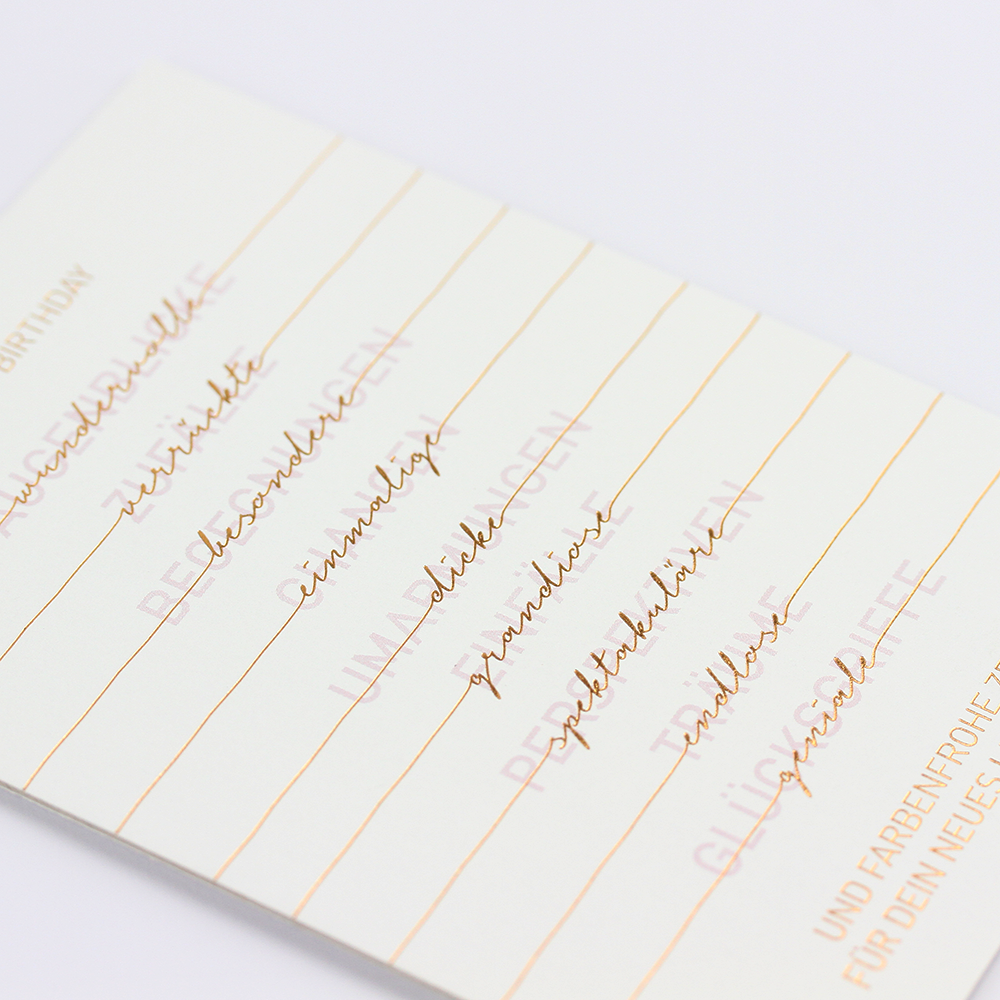 BIRTHDAY
wundervolle
AUGENBLICKE
verrückte
ZUFÄLLE
besondere
BEGEGNUNGEN
einmalige
CHANCEN
dicke
UMARMUNGEN
grandiose
EINFÄLLE
spektakuläre
PERSPEKTIVEN
endlose
TRÄUME
geniale
GLÜCKSGRIFFE
UND FARBENFROHE
FÜR DEIN NEUES